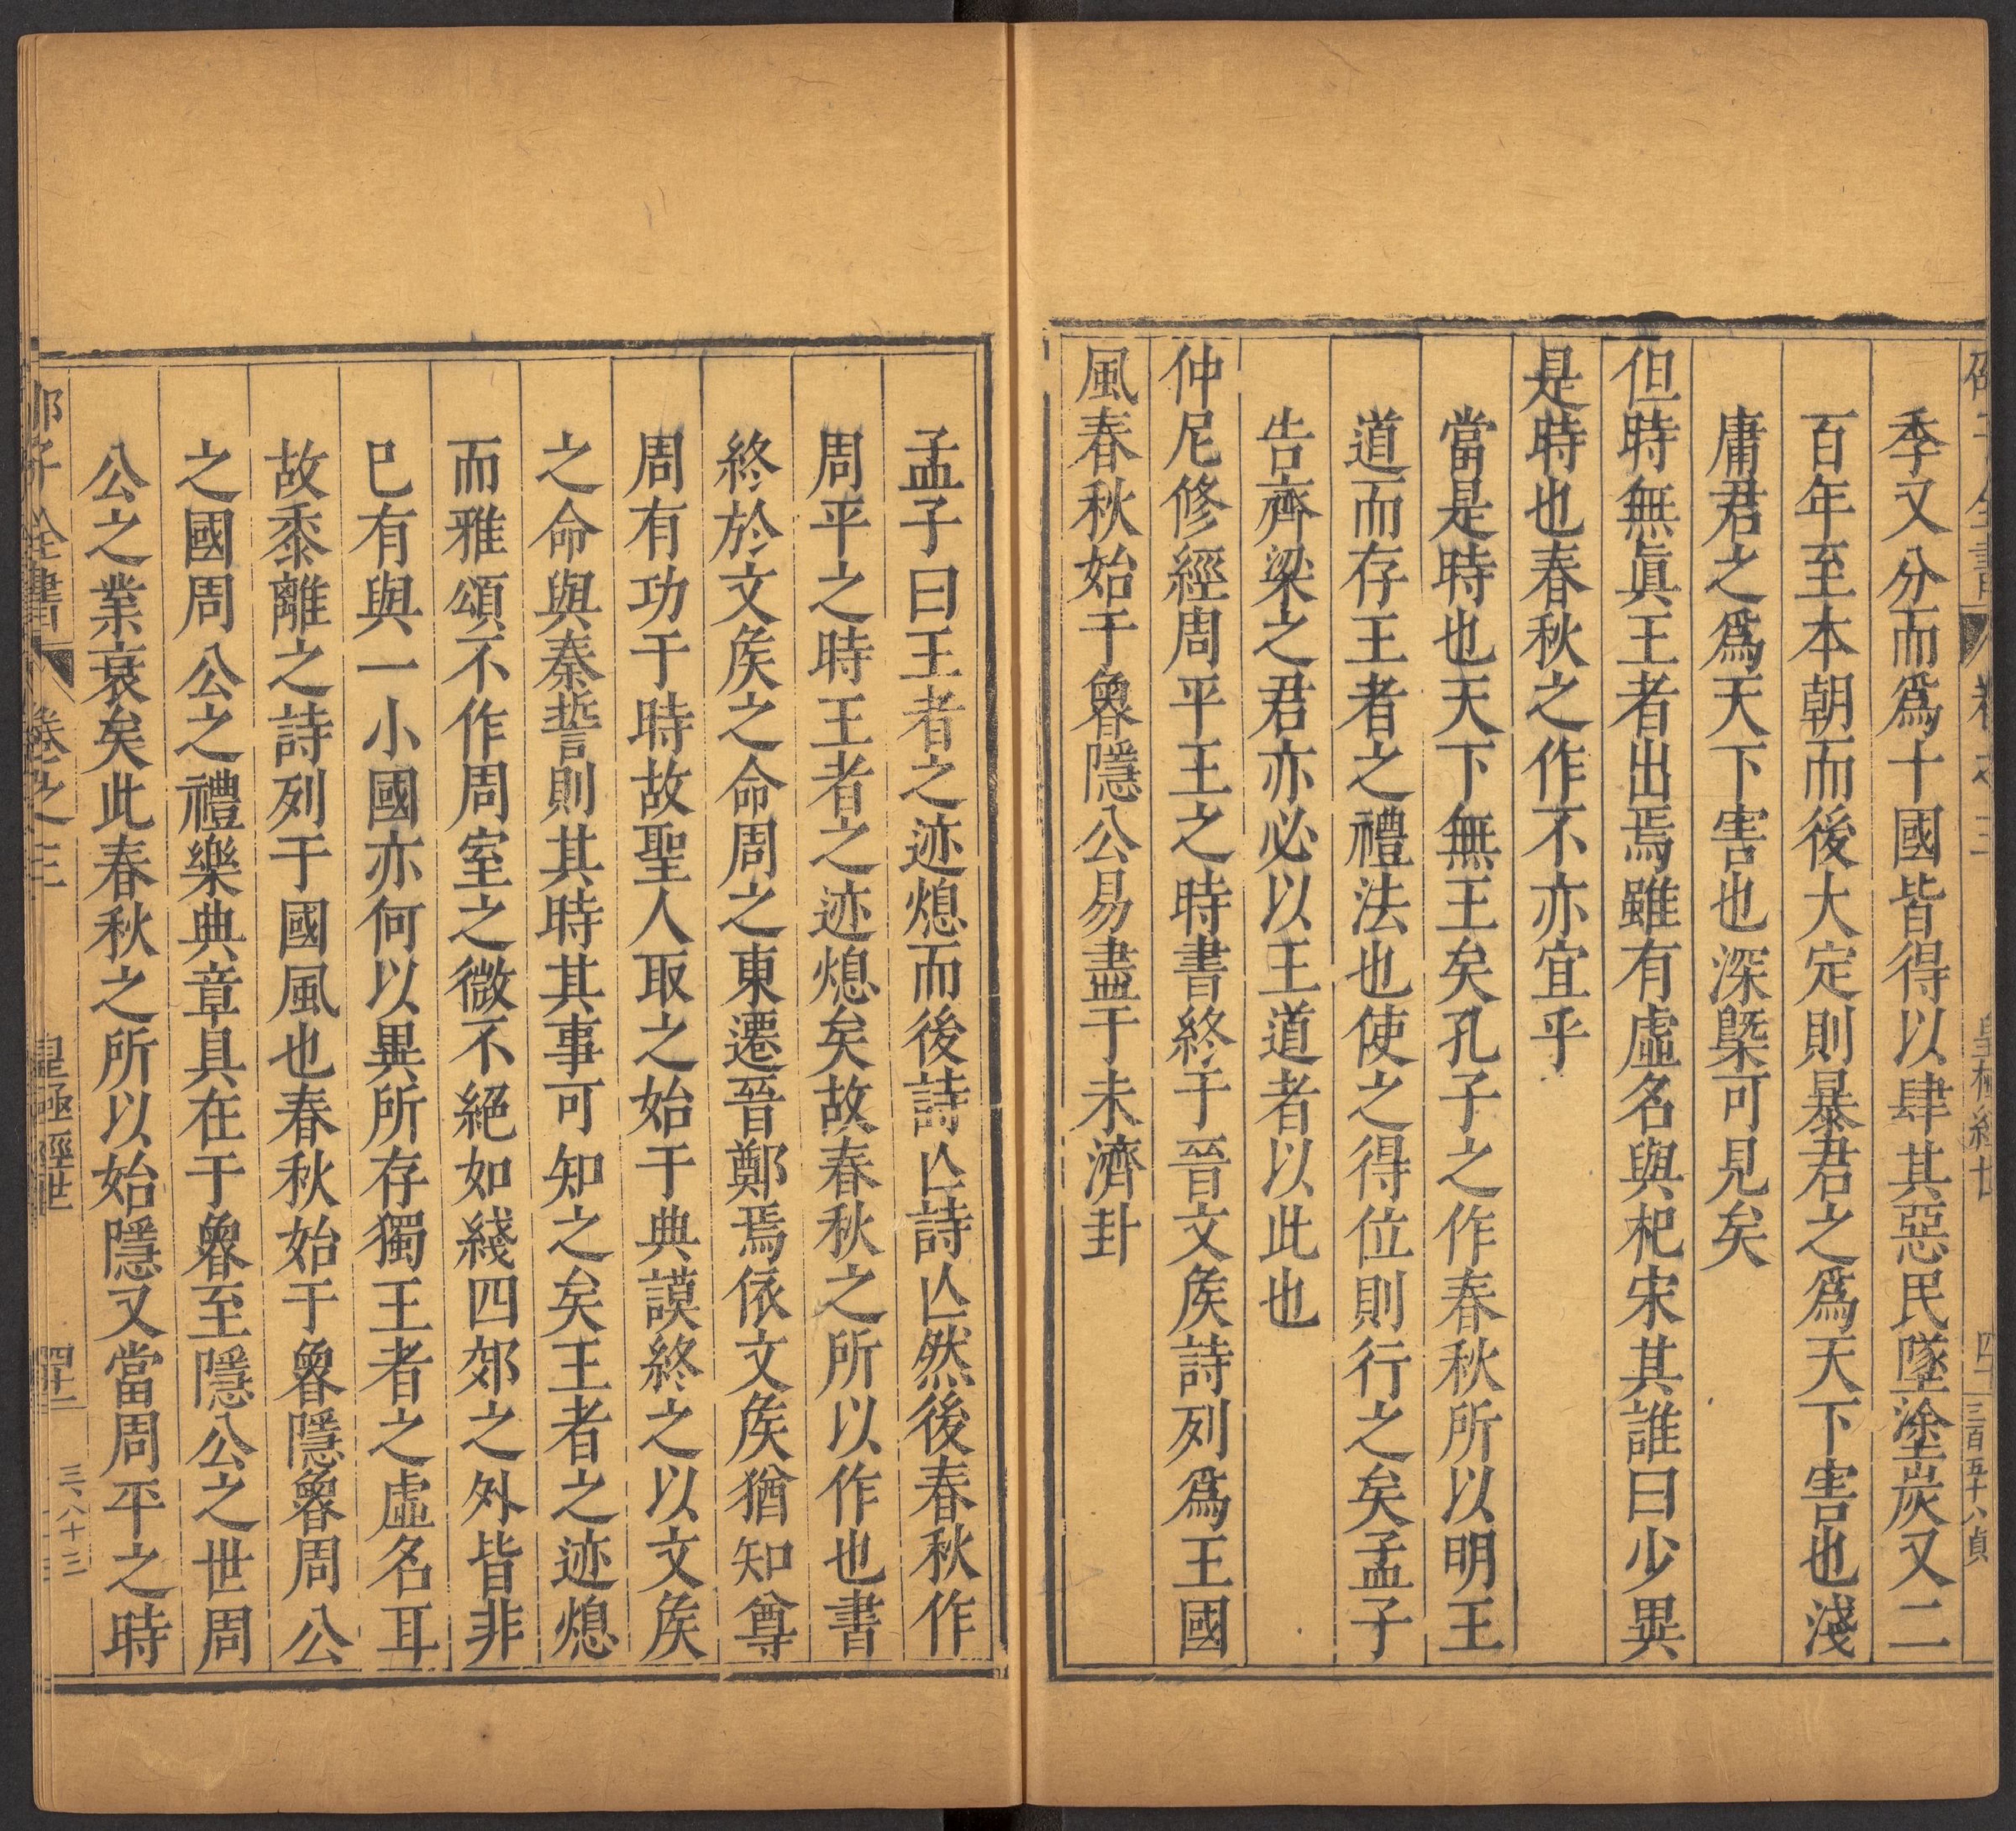 季又分而爲十國皆得以肆其惡民墜塗炭又二
百年至本朝而後大定則暴君之爲天下害也淺
庸君之爲天下害也深槩可見矣
但時無眞王者出焉雖有虛名與杞宋其誰曰少異
是時也春秋之作不亦宜乎
當是時也天下無王矣孔子之作春秋所以明王
道而存王者之禮法也使之得位則行之矣孟子
告齊梁之君亦必以王道者以此也
仲尼修經周平王之時書終于晉文矦詩列爲王國
風春秋始于魯隱公易盡于未濟卦
孟子曰王者之迹熄而後詩亾詩亾然後春秋作
周平之時王者之迹熄矣故春秋之所以作也書
終於文矦之命周之東遷晉鄭焉依文矦猶知尊
周有功于時故聖人取之始于典謨終之以文矦
之命與秦誓則其時其事可知之矣王者之迹熄
而雅頌不作周室之微不絕如綫四郊之外皆非
已有與一小國亦何以異所存獨王者之虛名耳
故黍離之詩列于國風也春秋始于魯隱魯周公
之國周公之禮樂典章具在于魯至隱公之世周
公之業衰矣此春秋之所以始隱又當周平之時
邵子全書 卷之三 皇極經世